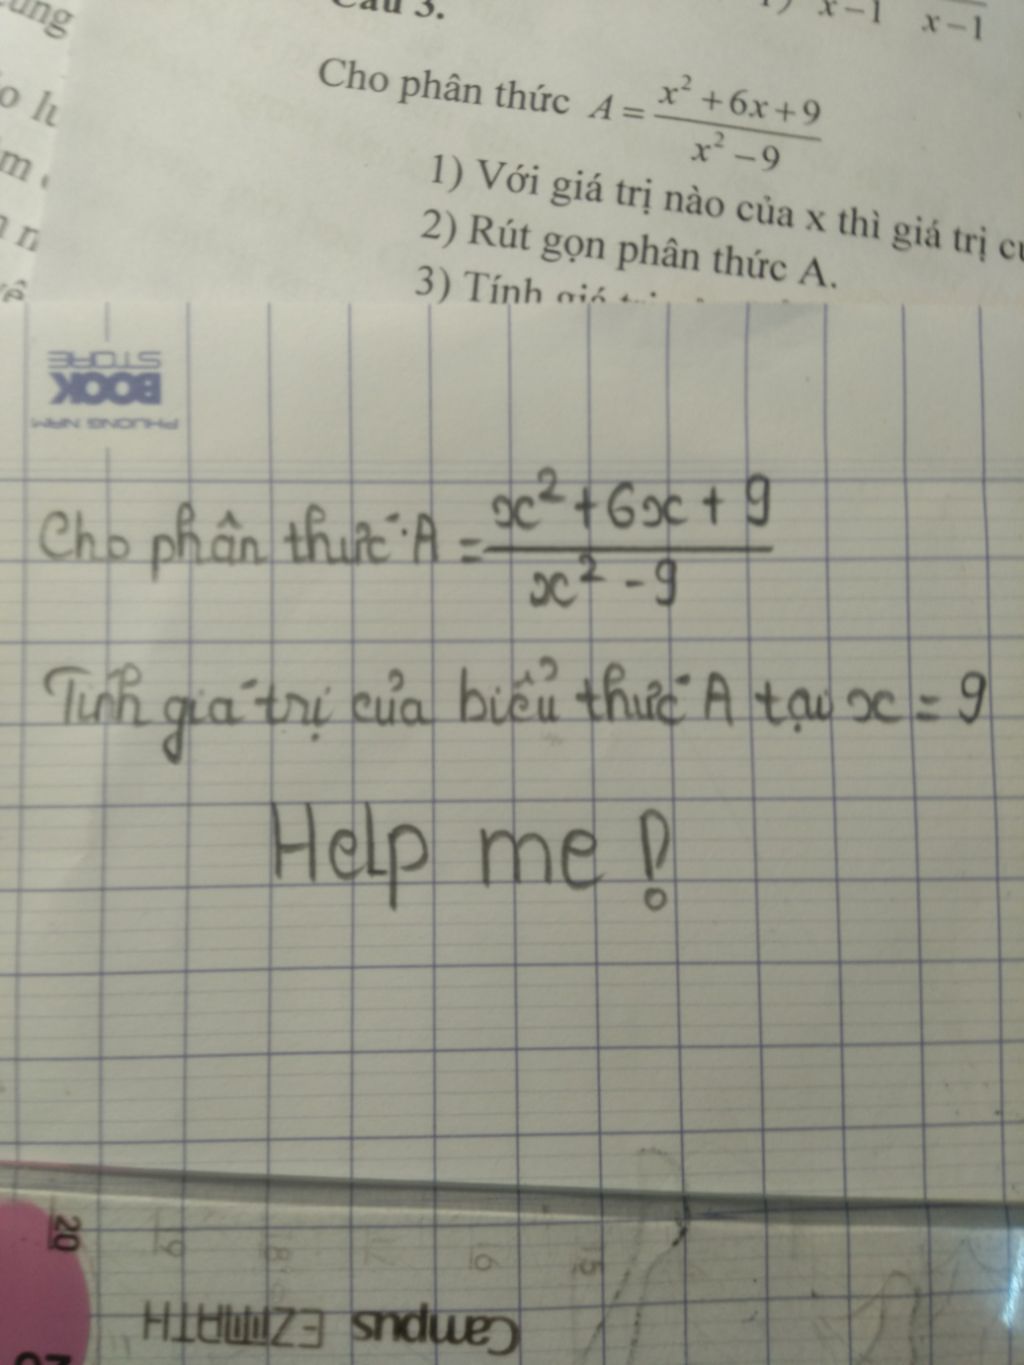 Câu 3.
x-1 x-1
Cho phân thức A = \frac{x^2+6x+9}{x^2-9}
1) Với giá trị nào của x thì giá trị
2) Rút gọn phân thức A.
3) Tính giá trị
BOOK STORE
PHUONG NAM
Cho phân thức: A = \frac{x^2+6x+9}{x^2-9}
Tính giá trị của biểu thức A tại x = 9
Help me!
20 19 18 17 16 15
Campus EZMATH